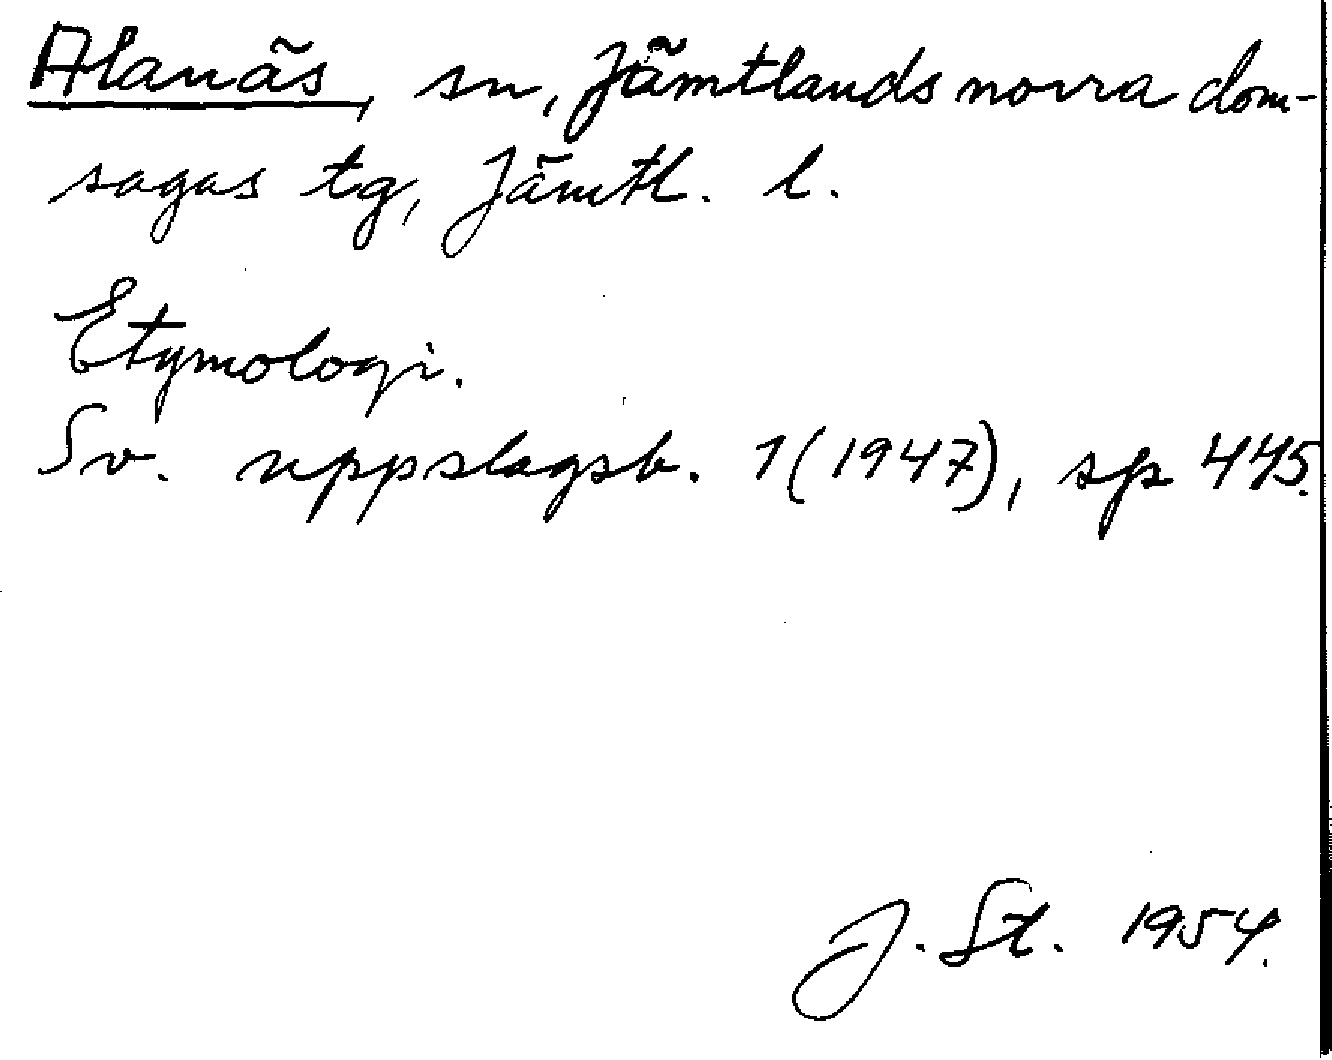 Alanäs, sn, Jämtlands norra dom-
sagas tg, Jämtl. l.
Etymologi.
Sv. uppslagsb. 1(1947), sp 445.
J. St. 1954.